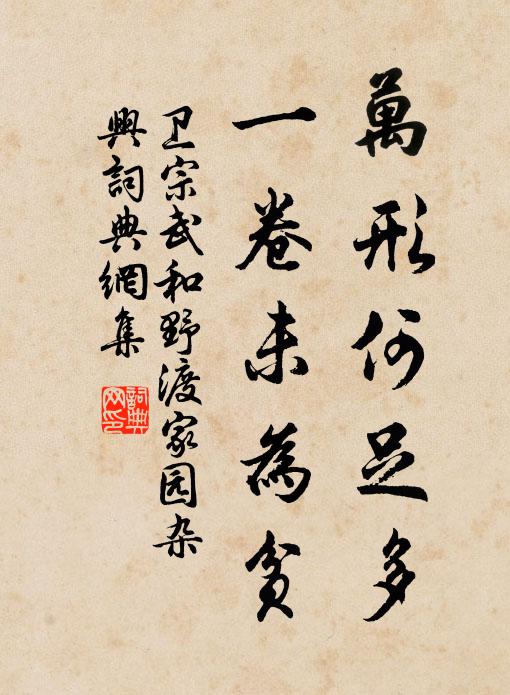 萬形何足多
一卷未為貧
卫宗武和野渡家园杂
興詞典網集
詞典
网印